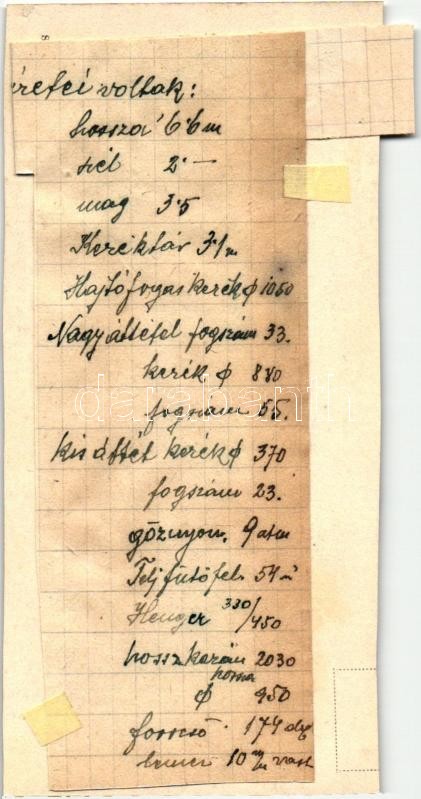 méretei voltak:
hossza 6·6 m
szél 2·—
mag 3·5
Keréktáv 3·1 m
Hajtófogaskerék ϕ 1050
Nagy áttétel fogszám 33.
kerék ϕ 880
fogszám 55.
Kis áttét kerék ϕ 370
fogszám 23.
gőznyom. 9 atm
Telj fűtőfel. 54 m²
Henger 330/450
hosszkazán 2030
hossza
ϕ 950
forrcső · 174 db
10 m/m vast